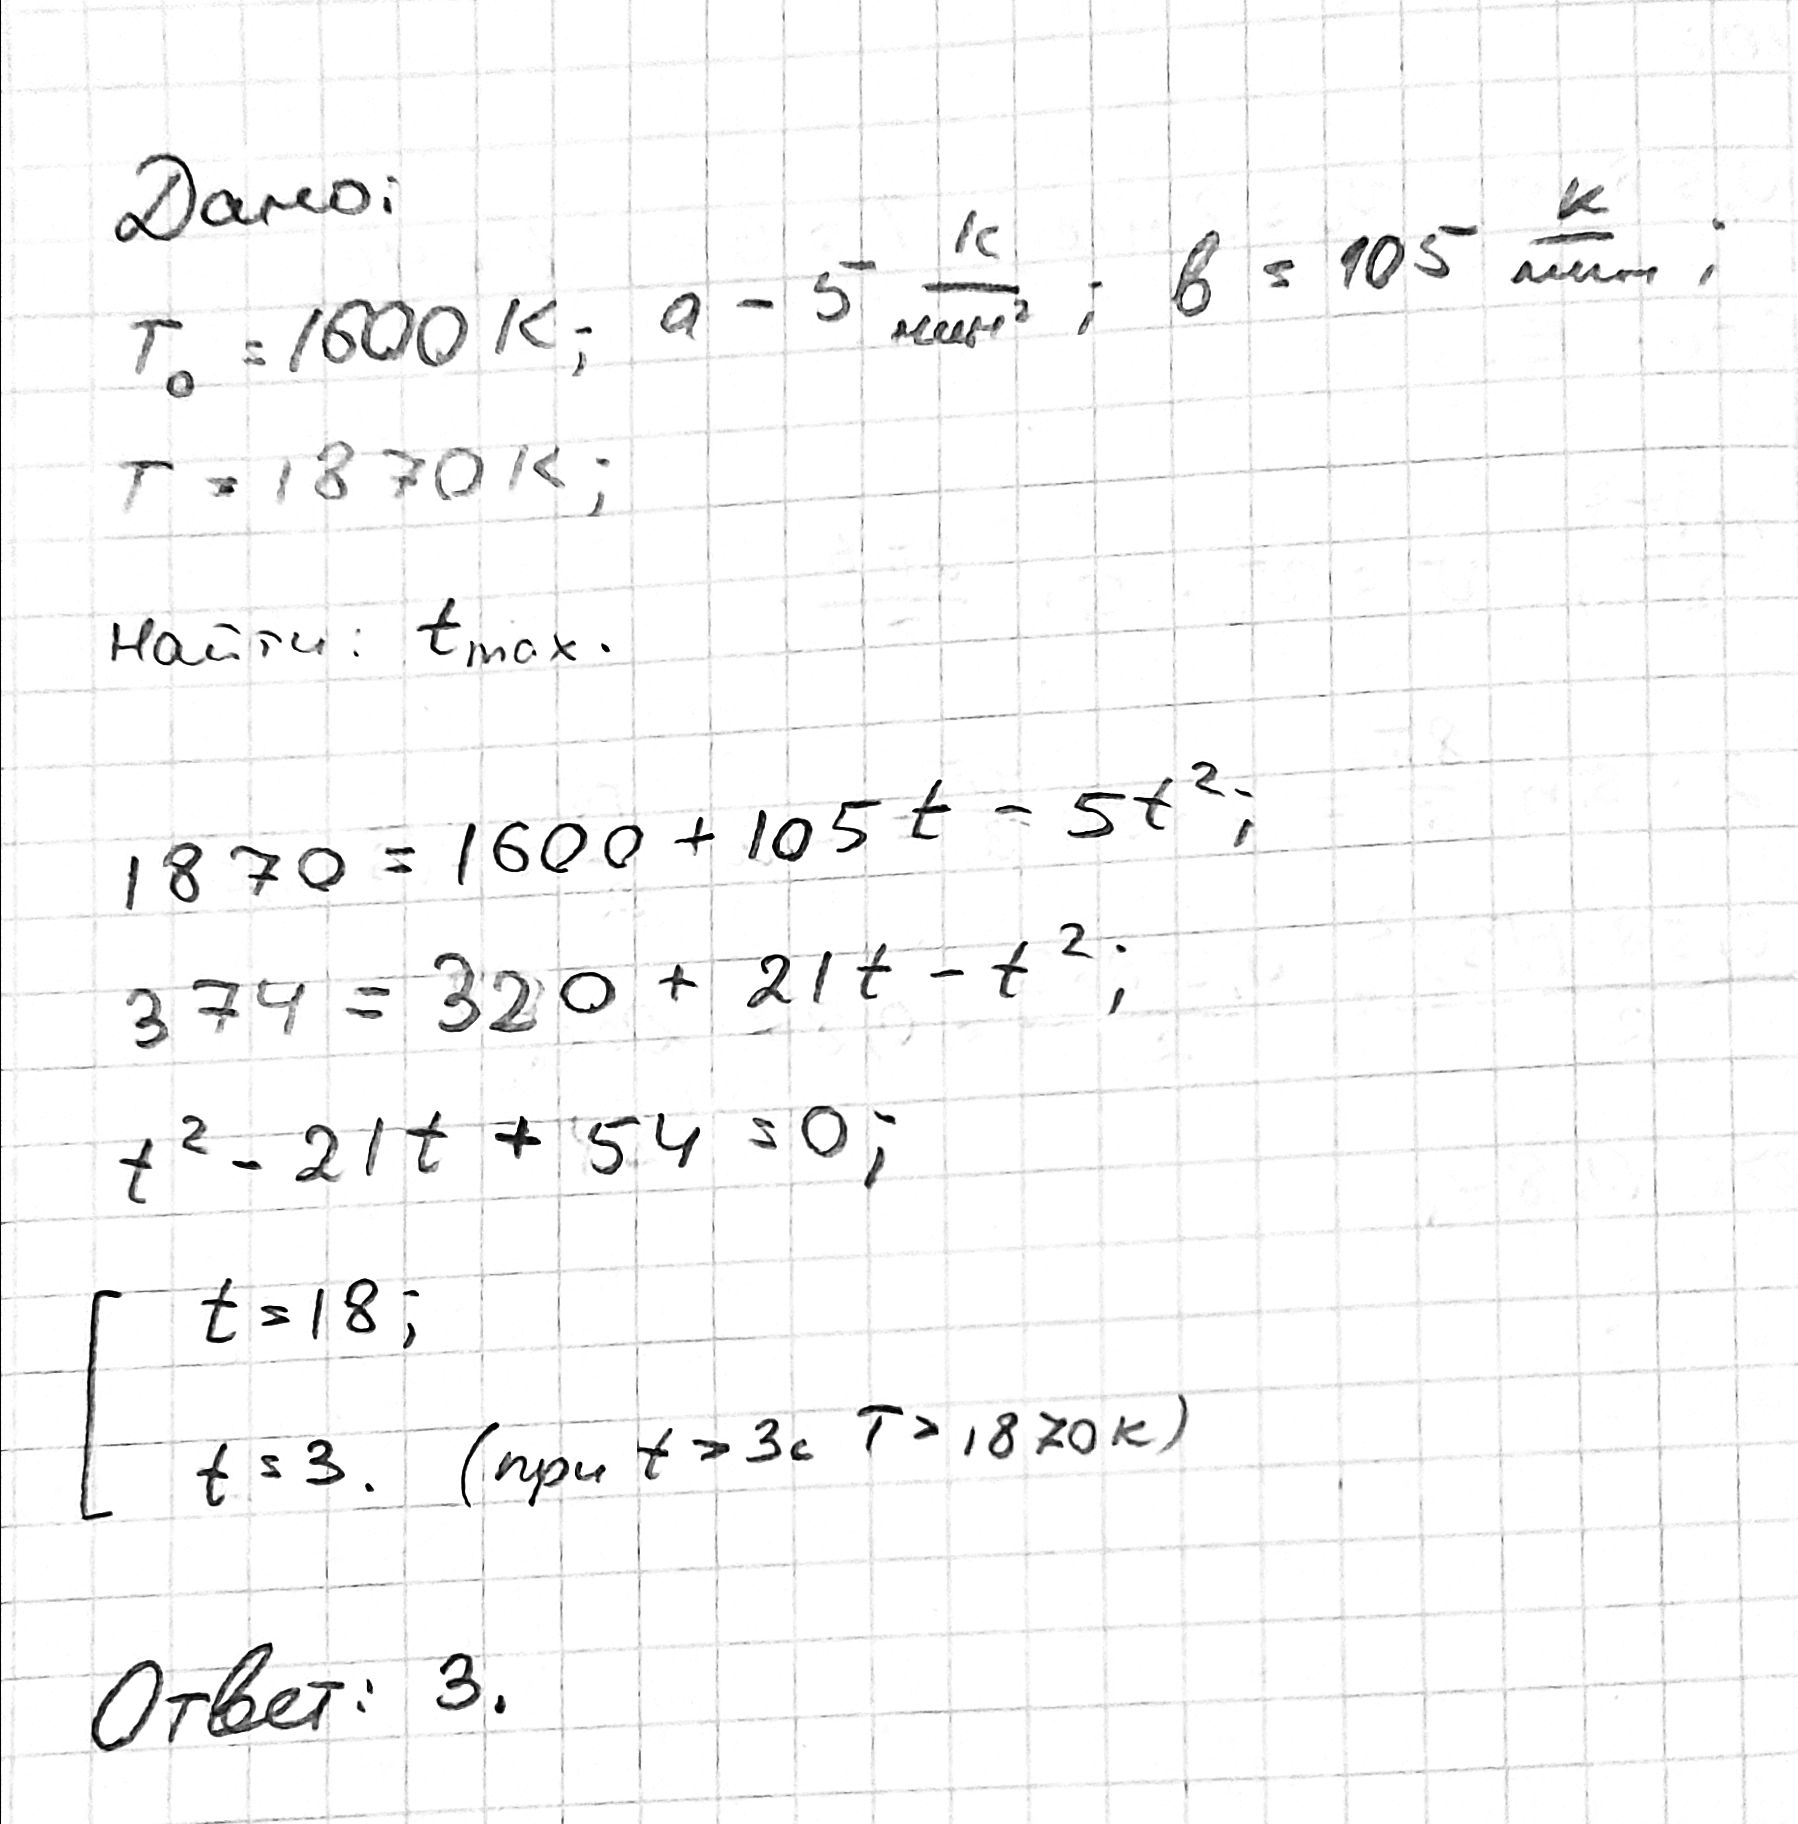 Дано:
T₀ = 1600 К; a - 5 К/мин²; b = 105 К/мин;
T = 1870 К;
Найти: tmax.
1870 = 1600 + 105t - 5t²;
374 = 320 + 21t - t²;
t² - 21t + 54 = 0;
[ t = 18;
t = 3. (при t > 3с T > 1870К)
Ответ: 3.